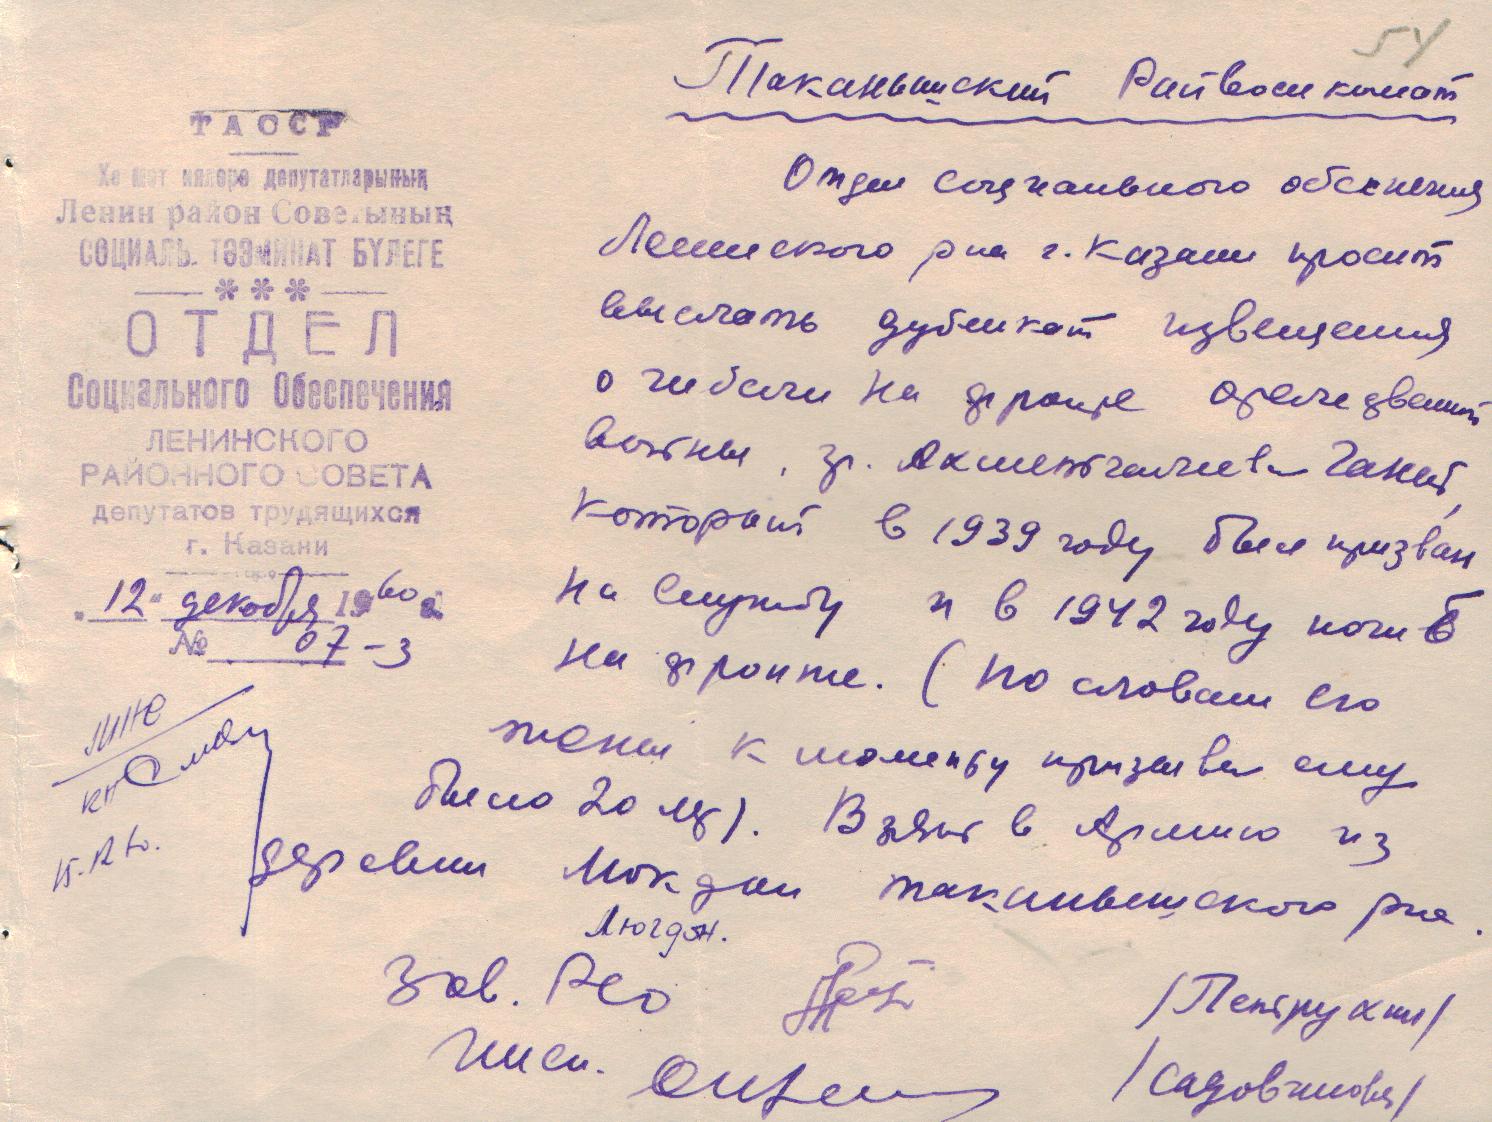 54
ТАССР
депутатларының
Ленин район Советының
СОЦИАЛЬ. ТӘЭМИНАТ БҮЛЕГЕ
ОТДЕЛ
Социального Обеспечения
ЛЕНИНСКОГО
РАЙОННОГО СОВЕТА
депутатов трудящихся
г. Казани
"12" декабря 1960 г.
№ 07-3
Таканышский Райвоенкомат
Отдел социального обеспечения
Ленинского р-на г. Казани просит
выслать дубликат извещения
о гибели на фронте отечественной
войны, гр. Ахметгалиева Гания,
который в 1939 году был призван
на службу и в 1942 году погиб
на фронте. (По словам его
жены к моменту призыва ему
было 20 лет). Взят в Армию из
деревни Мокдан таканышского р-на.
Люгдон.
Зав. РСО /Петрухин/
Инсп. /Садовникова/